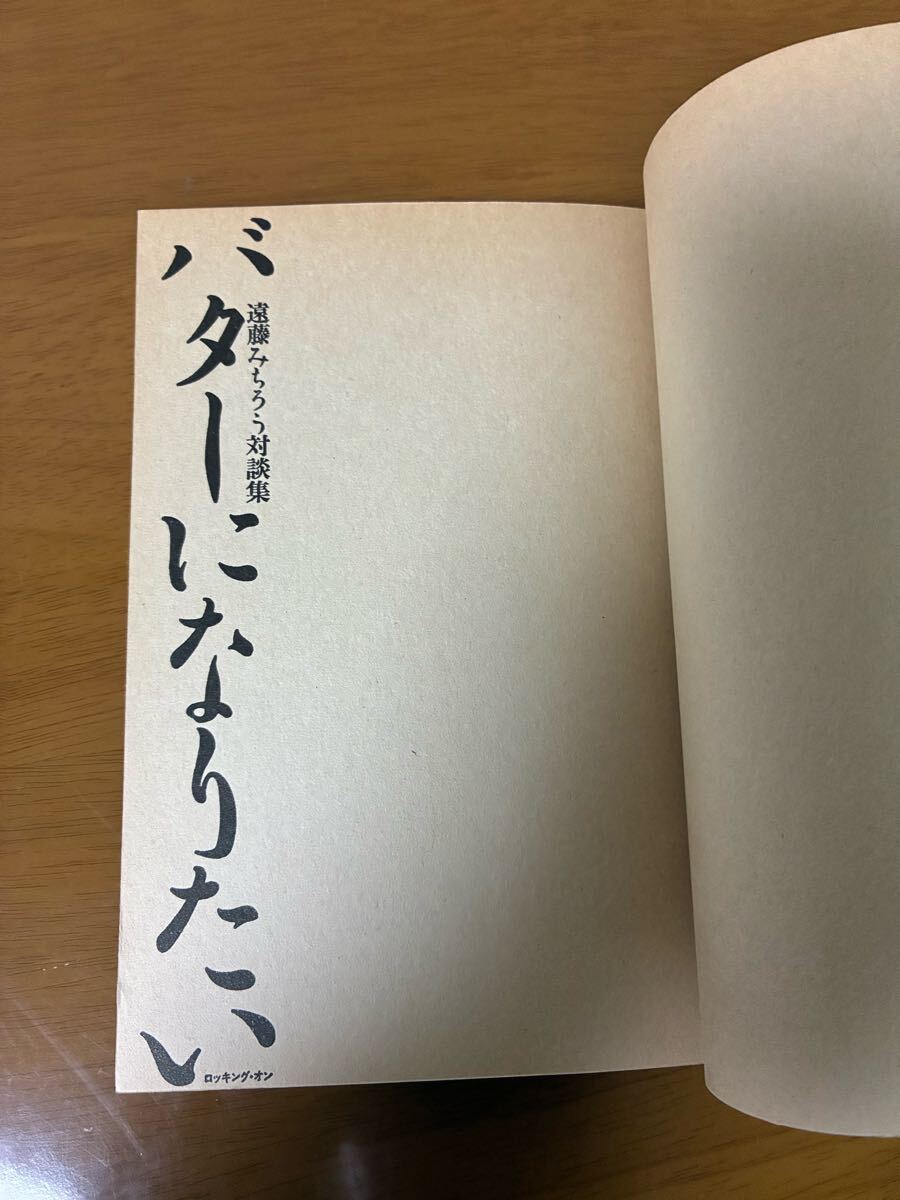 バターになりたい
遠藤みちろう対談集
ロッキング・オン